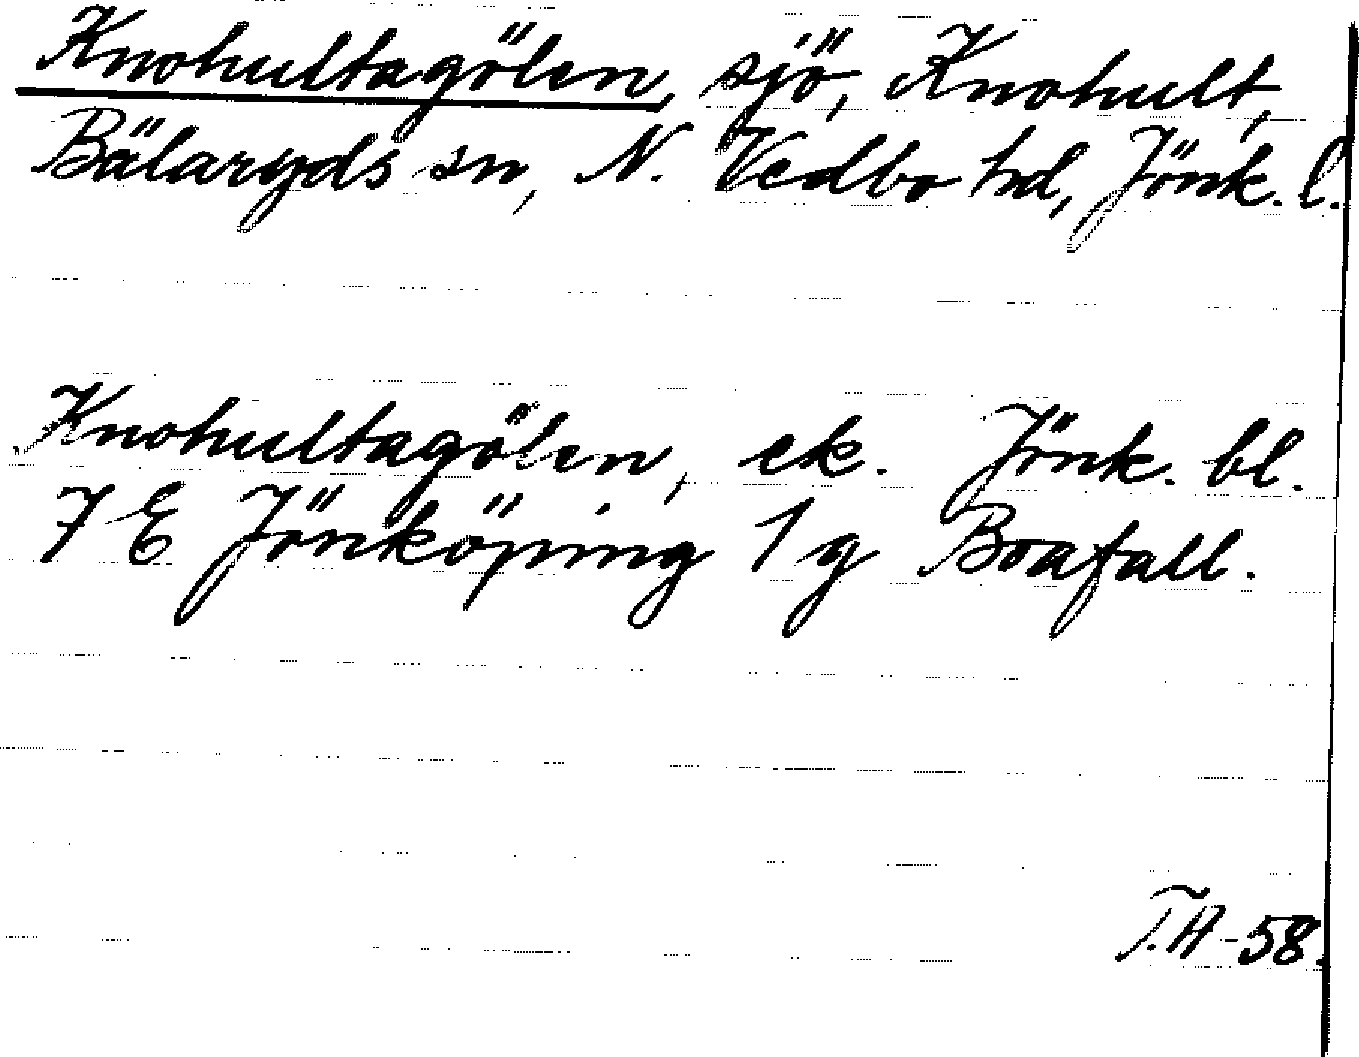 Knohultagölen, sjö, Knohult,
Bälaryds sn, N. Vedbo hd, Jönk. l.
Knohultagölen, ek. Jönk. bl.
7 E Jönköping 1 g Boafall.
T.A-58.